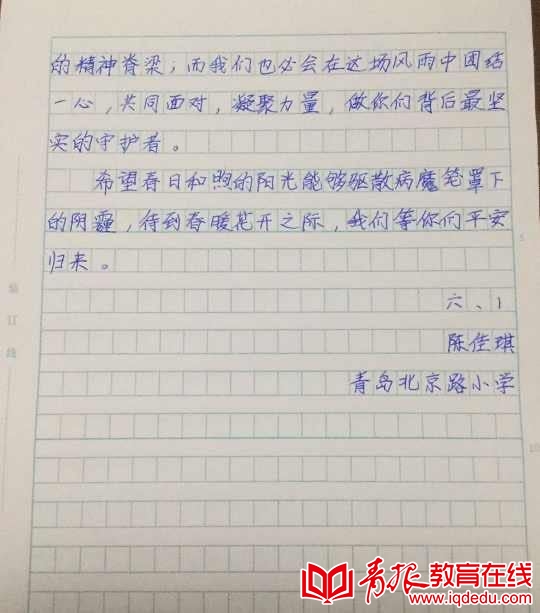 的精神脊梁；而我们也必会在这场风雨中团结
一心，共同面对，凝聚力量，做你们背后最坚
实的守护者。
希望春日和煦的阳光能够驱散病魔笼罩下
的阴霾，待到春暖花开之际，我们等你们平安
归来。
六、1
陈佳琪
青岛北京路小学
装
订
线
5
10
青报教育在线
www.iqdedu.com